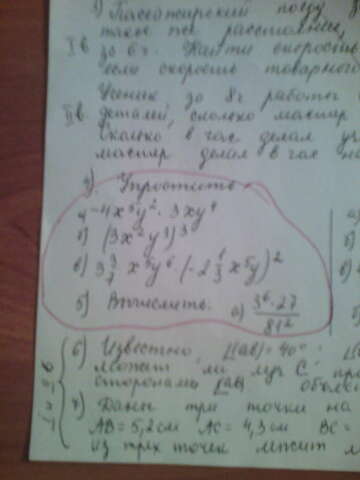 1) Пассажирский поезд
такое же расстояние,
I в. за 6 ч. Найти скорость
если скорость товарного
Ученик за 8ч работы
II в. деталей, сколько мастер
Сколько в час делал уч
мастер делал в час на
Упростить.
-4x⁵y². 3xy⁴
б) (3x²y³)³
в) 3 3/7 . x⁵y⁶ . (-2 1/3 x⁵y)²
5) Вычислить. а) 3⁶ . 27 / 81²
6) Известно, ∠(ab) = 40°.
Может ли луч C, про
сторонами ∠ab,
7) Даны три точки на
AB = 5,2 см AC = 4,3 см BC =
из трёх точек лежит м